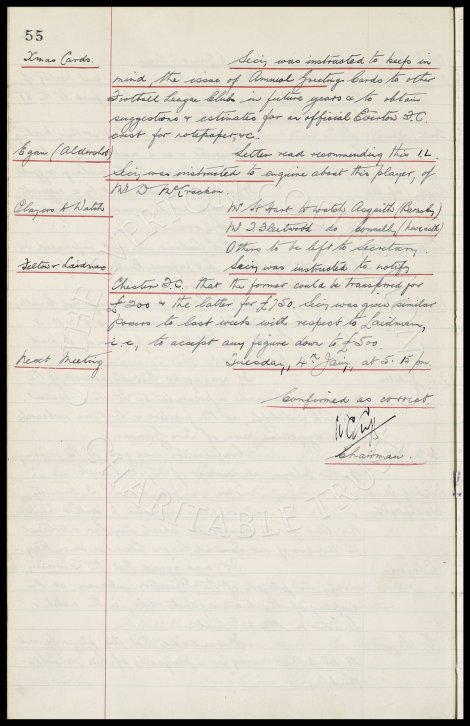 55
Xmas Cards. Secy. was instructed to keep in
mind the issue of Annual Greetings Cards to other
Football League Clubs in future years & to obtain
suggestions & estimates for an official Everton F.C.
crest for notepaper, &c.
Egan (Aldershot) Letter read recommending this I.L.
Secy. was instructed to enquire about this player, of
Mr D. McCracken.
Players to Watch Mr W. Hart to watch Asquith (Barnsley)
Mr T. Fleetwood do Connelly (Newcastle)
Others to be left to Secretary.
Felton & Laidman Secy. was instructed to notify
Chester F.C. that the former could be transferred for
£200 & the latter for £750. Secy. was given similar
powers to last weeks with respect to Laidman,
i.e., to accept any figure down to £500.
Next Meeting Tuesday, 4th Jany., at 5.15 pm.
Confirmed as correct.
Chairman.
THE EVERTON
CHARITABLE TRUST